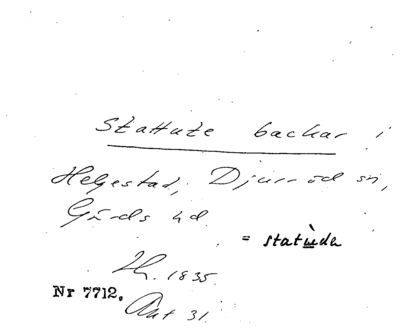 Stattute backar i
Helgestad, Djurröd sn,
Gärds hd.
= statùda
1835.
Nr 7712.
31.